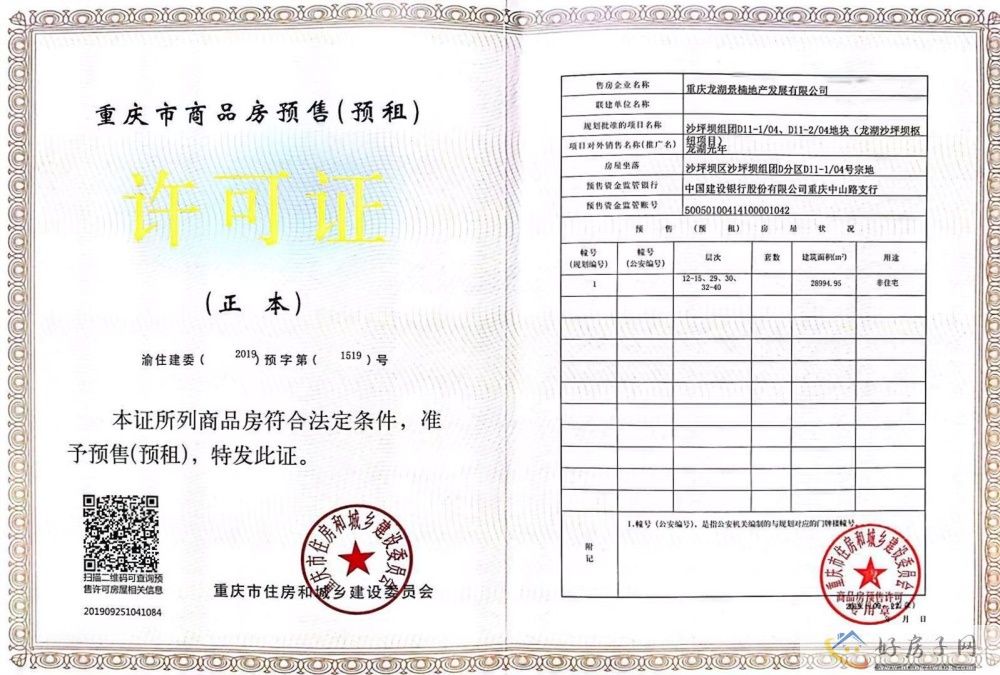 重庆市商品房预售(预租)
许可证
(正 本)
渝住建委( 2019)预字第( 1519)号
本证所列商品房符合法定条件，准
予预售(预租)，特发此证。
扫描二维码可查询预
售许可房屋相关信息
201909251041084
重庆市住房和城乡建设委员会
重庆市住房和城乡建设委员会
售房企业名称 重庆龙湖景楠地产发展有限公司
联建单位名称
规划批准的项目名称 沙坪坝组团D11-1/04、D11-2/04地块（龙湖沙坪坝枢
纽项目）
项目对外销售名称(推广名) 龙湖光年
房屋坐落 沙坪坝区沙坪坝组团D分区D11-1/04号宗地
预售资金监管银行 中国建设银行股份有限公司重庆中山路支行
预售资金监管账号 50050100414100001042
预 售 (预 租) 房 屋 状 况
幢号 幢号 层次 套数 建筑面积(m²) 用途
(规划编号) (公安编号)
1 12-15、29、30、 28994.95 非住宅
32-40
附
记
1.幢号（公安编号）、是指公安机关编制的与规划对应的门牌楼幢号
重庆市住房和城乡建设委员会
商品房预售许可
专用章
年 月 日
好房子网